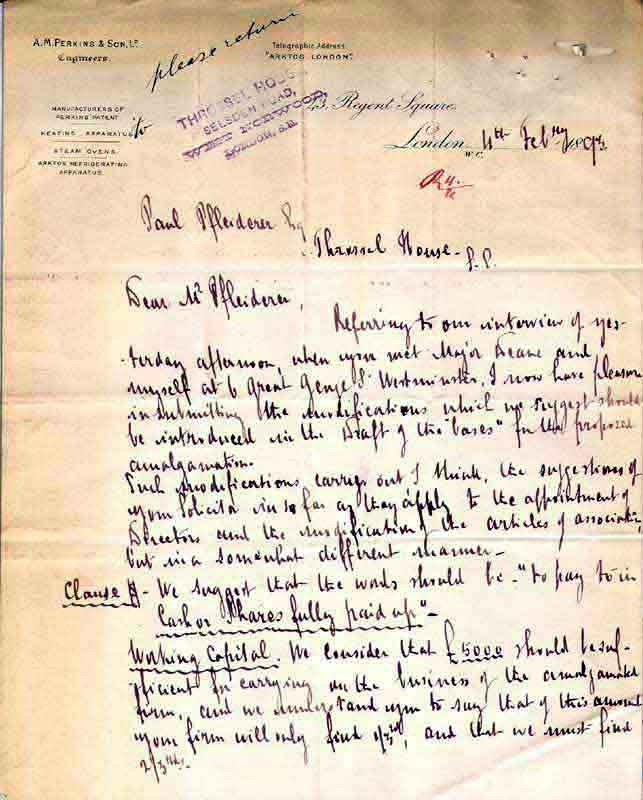 A. M. PERKINS & SON, LD
Engineers.
please return
Telegraphic Address
"ARKTOS LONDON".
MANUFACTURERS OF
PERKINS PATENT
HEATING APPARATUS
STEAM OVENS.
ARKTOS REFRIGERATING
APPARATUS.
to
THROSSEL HOUSE
SELSDON ROAD,
WEST NORWOOD,
LONDON, S.E.
43, Regent Square.
London 4th Feby 1893
W.C.
Paul Pfleiderer Esq
Throssel House -
Dear Mr Pfleiderer,
Referring to our interview of yes-
-terday afternoon, when you met Major Deane and
myself at 6 Great George St Westminster, I now have pleasure
in submitting the modifications which we suggest should
be introduced in the Draft of the "bases" for the proposed
amalgamation.
Such modifications, carry out I think, the suggestions of
your Solicitor in so far as they apply to the appointment of
Directors and the modification of the articles of association,
but in a somewhat different manner -
Clause - We suggest that the words should be - "to pay to in
Cash or Shares fully paid up" -
Working Capital. We consider that £5000 should be suf-
-ficient for carrying on the business of the amalgamated
firm, and we understand you to say that of this amount
your firm will only find 1/3rd, and that we must find
2/3rds.